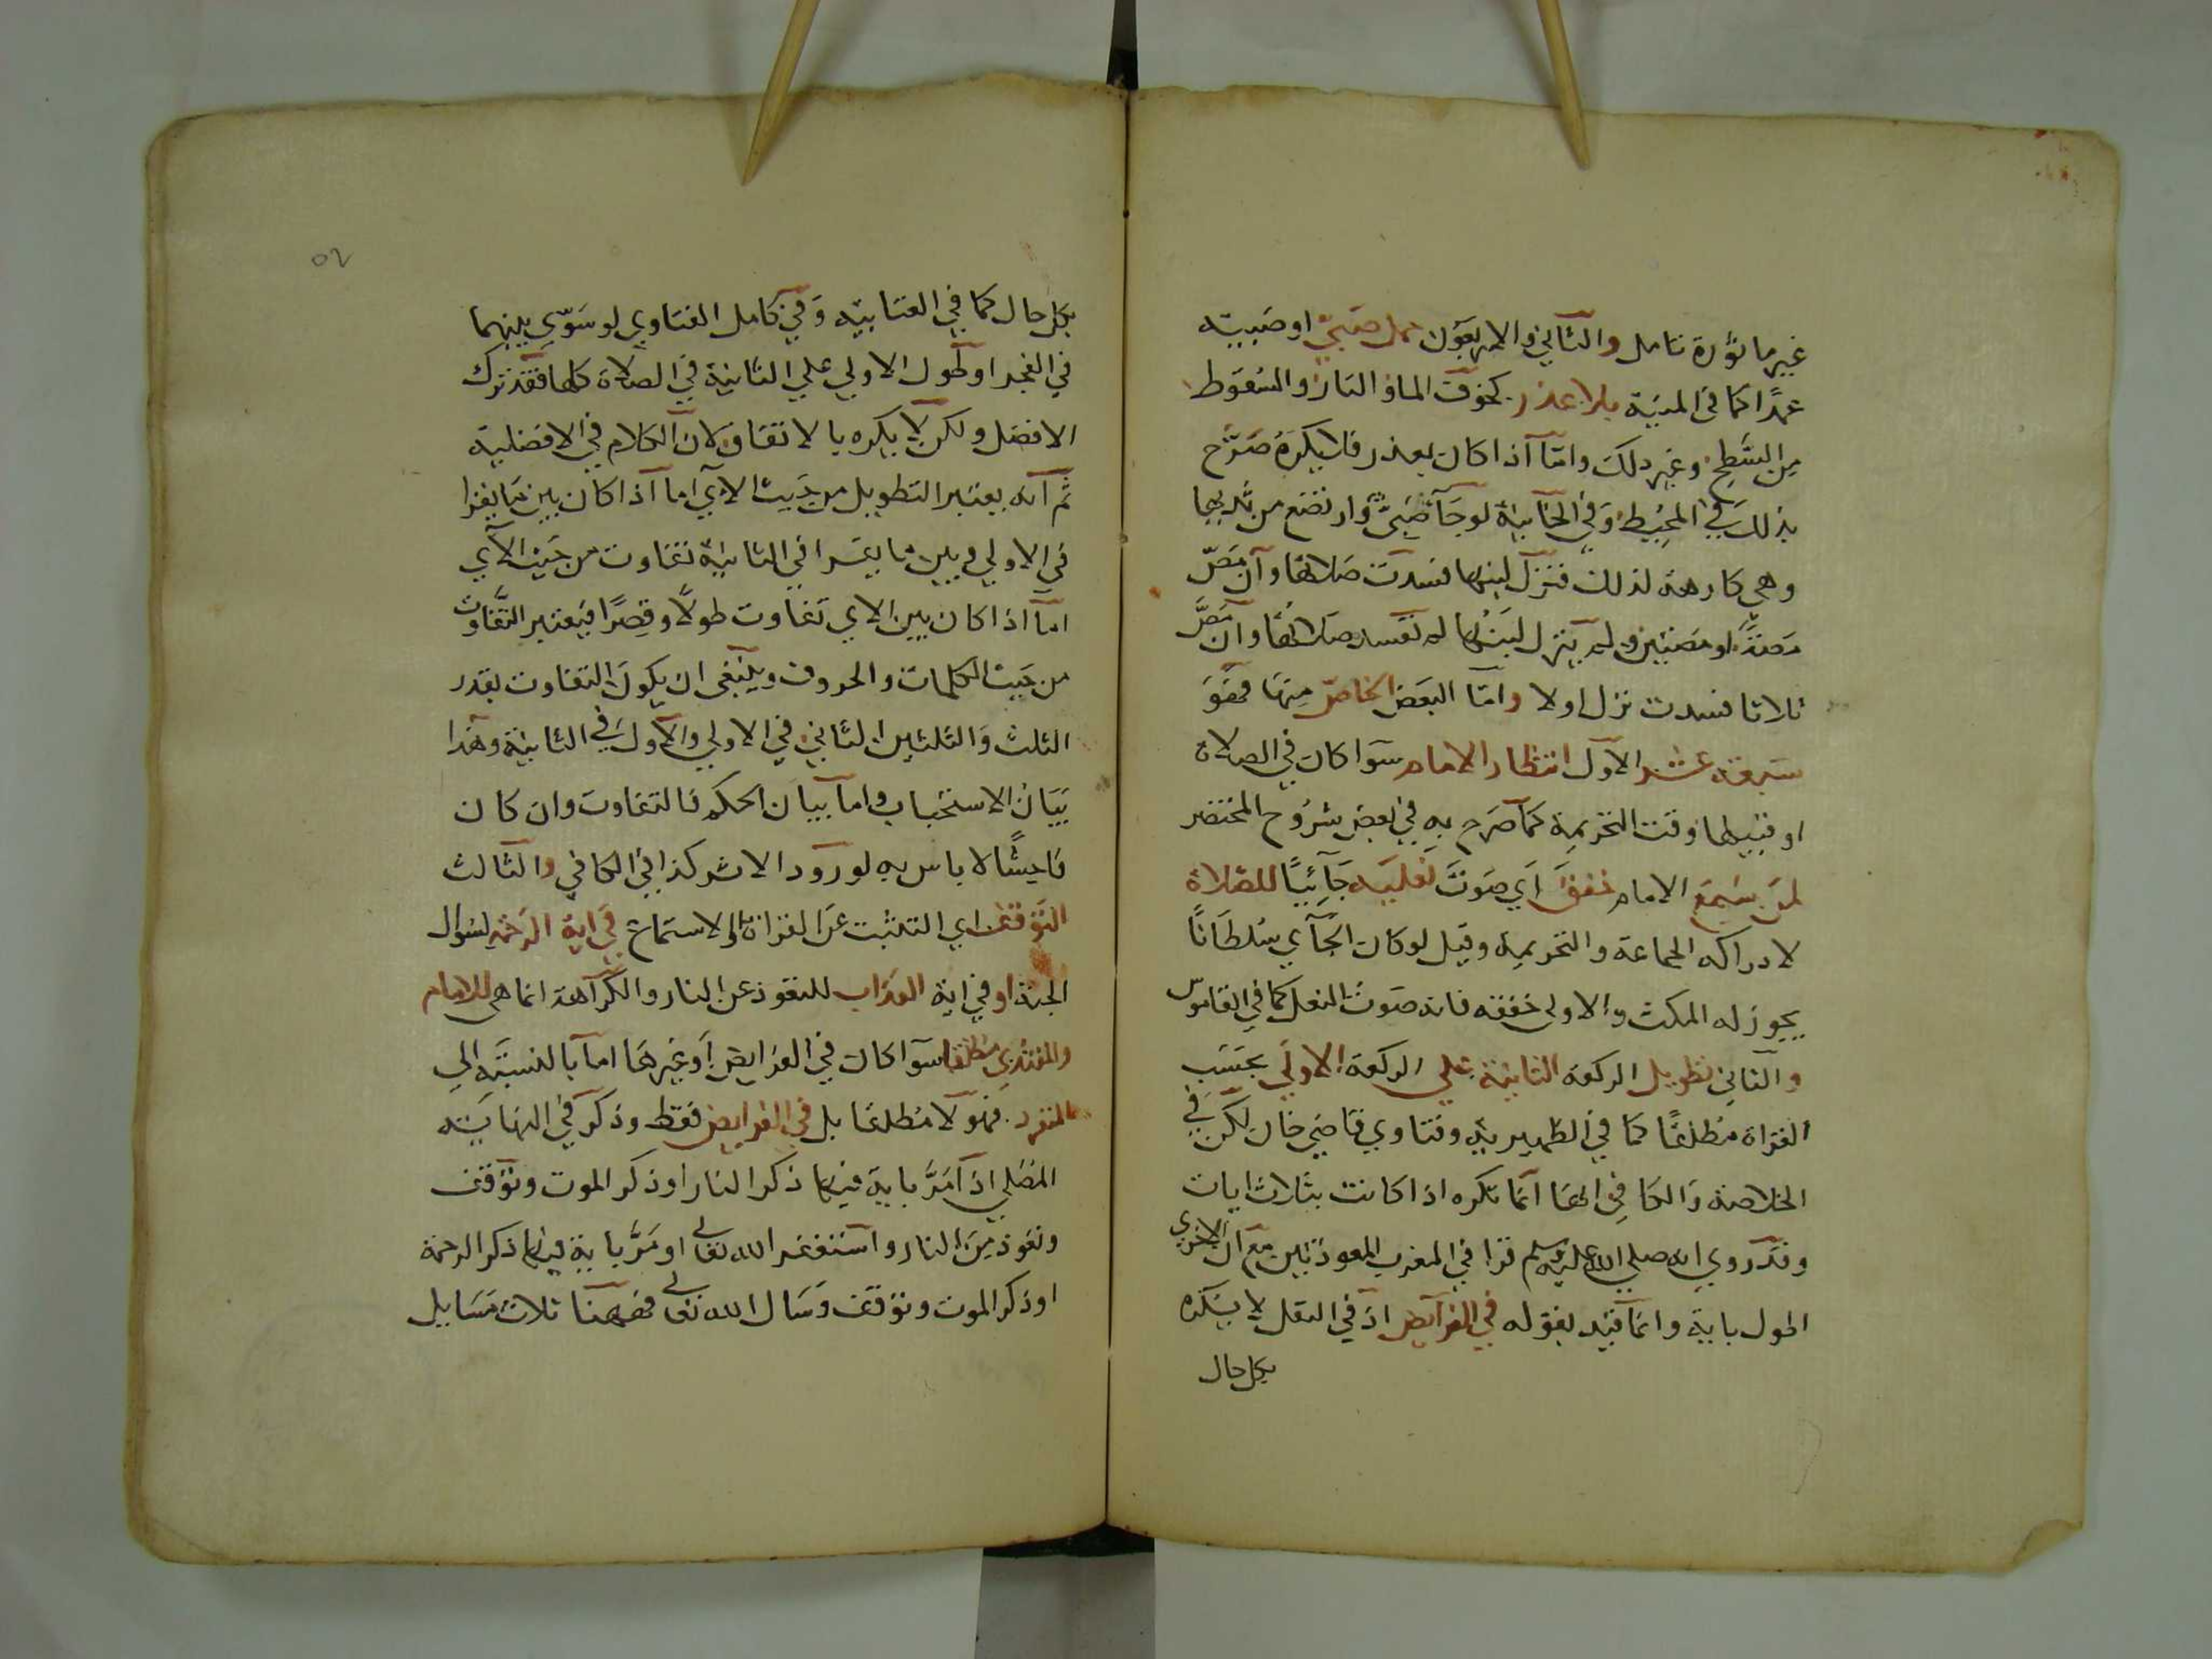 غير ماثورة تامل والثاني والاربعون حمل صبيّ او صبية
عمدًا كما في المنية بلا عذر كخوف الماء والنار والسقوط
من السَّطح وغير ذلك وامّا اذا كان بعذر فلا يكرَهُ صَرّح
بذلك في المحيط وفي الخانية لو جآء صَبىٌّ وارتضع من ثديها
وهي كارهة لذلك فنزل لبنها فسدت صَلاتها وان مَصّ
مصّةً او مصّتين ولم ينزل لبنُها لم تفسد صلاتها وان مَصَّ
ثلاثا فسدت نزل او لا وامّا البعض الخاصّ منها فهوَ
سبعة عشر الاول انتظار الامام سوآ كان في الصلاة
او قبيلها وقت التحريمة كما صرح به في بعض شرُوح المختصر
لمن سَمِعَ الامام خفقَ اي صَوتَ نعليه جَآئِيًا للصلاة
لادراكه الجماعة والتحريمة وقيل لو كان الجآي سُلطانًا
يجوز له المكث والاولى خفقه فانه صَوت النعل كما في القاموس
والثاني تطويل الركعة الثانية على الركعة الاولي بحسَب
القراة مُطلقًا كما في الظهيرية وفتاوي قاضي خان لكن في
الخلاصة والكافي انها انما تكره اذا كانت بثلاث ايات
وقد روي انه صلي الله عليه وسلم قرا في المغرب المعوذتين مع ان الاخري
اطول باية وانما قيّد بقوله في الفرآيض اذ في النفل لا يكره
بكل حال
٥٢
بكل حال كما في العتابية وفي كامل الفتاوي لو سَوّي بينهما
في الفجر او طول الاولي علي الثانية في الصلاة كلها فقد ترك
الافضل ولكن لا يكره بالاتفاق لان الكلام في الافضلية
ثم انه يعتبر التطويل من حيث الآي اما اذا كان بين ما يقرا
في الاولي وبين ما يقرا في الثانية تفاوت من حيث الآي
امآ اذا كان بين الاي تفاوت طولًا وقِصرًا فيعتبر التَّفاوت
من حيث الكلمات والحروف وينبغى ان يكونَ التفاوت بقدر
الثلث والثلثين الثاني في الاولي والاول في الثانية وهذا
بيانُ الاستحباب واما بيان الحكم فالتفاوت وان كان
فاحِشًا لا باس به لورود الاثر كذا في الكافي والثالث
التوقف اي التلبث عن القراة والاستماع في اية الرحمة لسُوال
الجنة او في اية العذاب للتعوذ عن النار والكرآهة انما هى للامام
والمقتدي مطلقا سوآ كان في الفرايض او غيرها اما بالنسبة الي
المنفرد فهو لا مُطلقا بل في الفرايض فقط وذكر في النهاية
المُصَلي اذا مَرَّ باية فيها ذكر النار او ذكر الموت وتوقف
وتعوذ من النار واستغفر الله تعالي او مَرَّ باية فيها ذكر الرحمة
او ذكر الموت وتوقف وسَال الله تعالي فههنا ثلاث مَسَايل